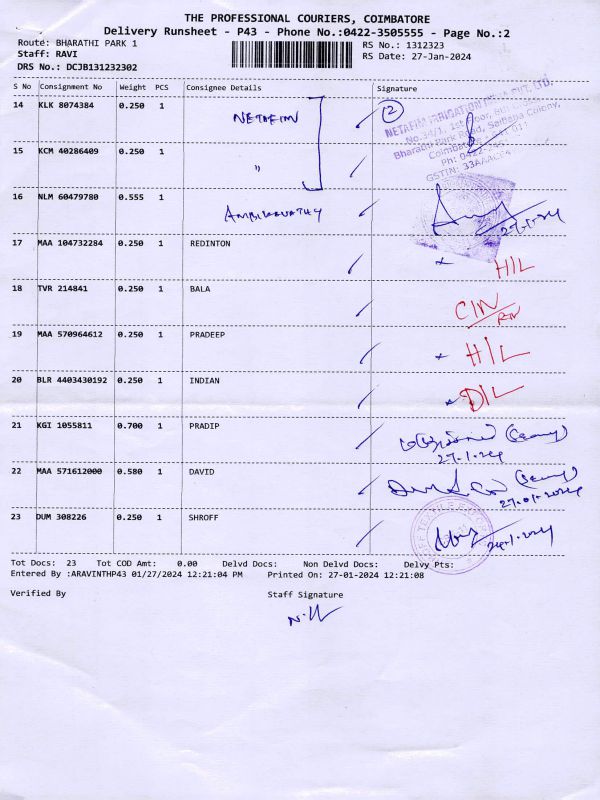 THE PROFESSIONAL COURIERS, COIMBATORE
Delivery Runsheet - P43 - Phone No.:0422-3505555 - Page No.:2
Route: BHARATHI PARK 1 RS No.: 1312323
Staff: RAVI RS Date: 27-Jan-2024
DRS No.: DCJB131232302
S No Consignment No Weight PCS Consignee Details Signature
14 KLK 8074384 0.250 1 NETAFIM 2
NETAFIM IRRIGATION INDIA PVT. LTD.
No.34/1, 1st Floor,
Bharathi Park Road, Saibaba Colony,
Coimbatore
Ph: 0422
GSTIN: 33AAACE4
15 KCM 40286409 0.250 1 "
16 NLM 60479780 0.555 1 27-1-24
17 MAA 104732284 0.250 1 REDINTON H/L
18 TVR 214841 0.250 1 BALA CIN
19 MAA 570964612 0.250 1 PRADEEP H/L
20 BLR 4403430192 0.250 1 INDIAN D/L
21 KGI 1055811 0.700 1 PRADIP
27-1-24
22 MAA 571612000 0.580 1 DAVID
27-01-2024
23 DUM 308226 0.250 1 SHROFF
Tot Docs: 23 Tot COD Amt: 0.00 Delvd Docs: Non Delvd Docs: Delvy Pts:
Entered By :ARAVINTHP43 01/27/2024 12:21:04 PM Printed On: 27-01-2024 12:21:08
Verified By Staff Signature